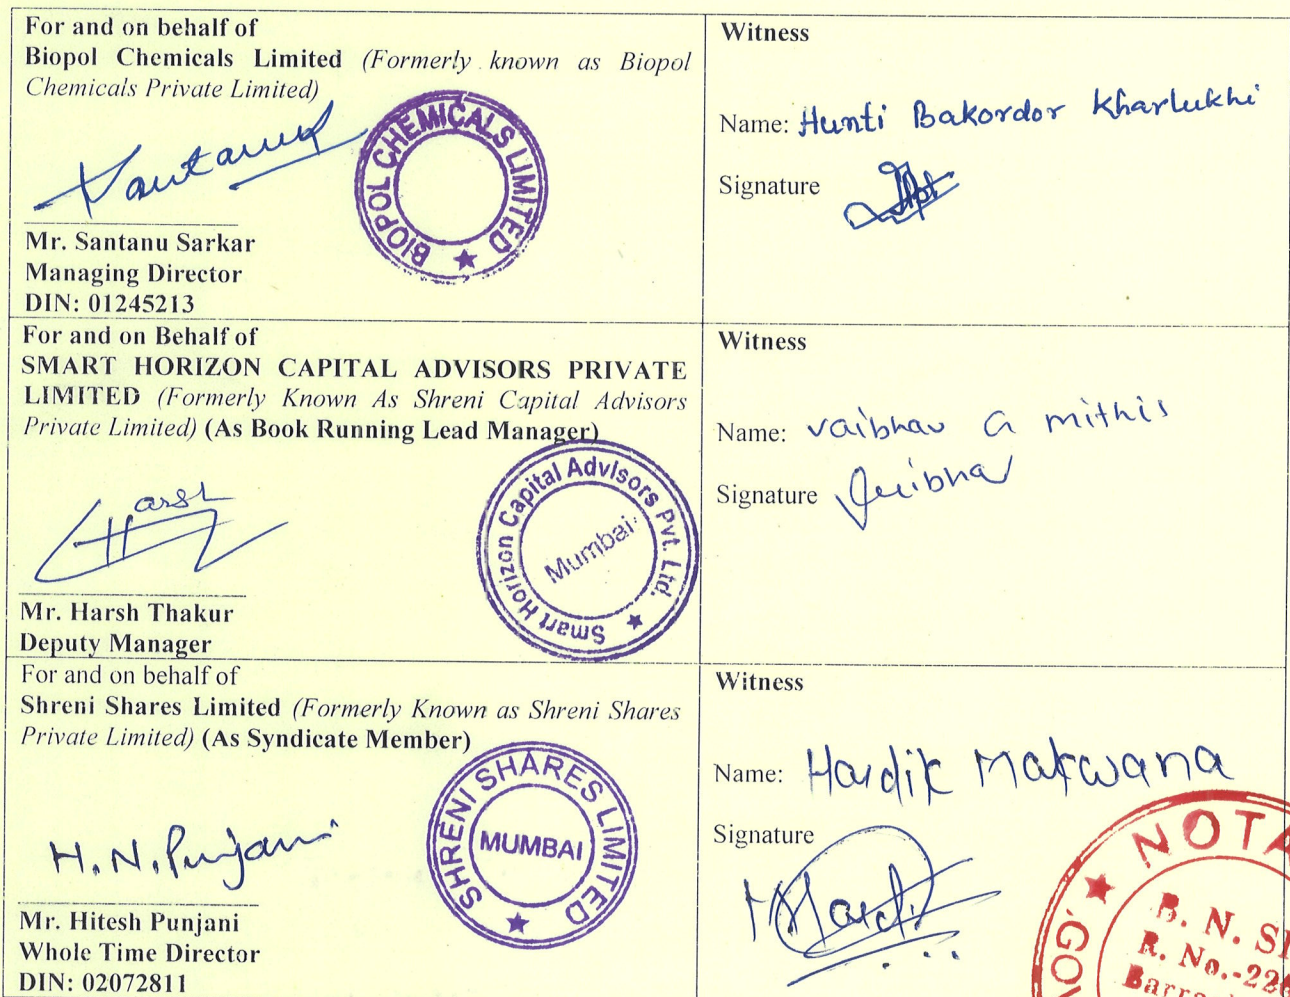 For and on behalf of
Biopol Chemicals Limited (Formerly known as Biopol
Chemicals Private Limited)
Santanu
BIOPOL CHEMICALS LIMITED ★
Mr. Santanu Sarkar
Managing Director
DIN: 01245213
Witness
Name: Hunti Bakordor Kharlukhi
Signature
For and on Behalf of
SMART HORIZON CAPITAL ADVISORS PRIVATE
LIMITED (Formerly Known As Shreni Capital Advisors
Private Limited) (As Book Running Lead Manager)
Harsh
Smart Horizon Capital Advisors Pvt. Ltd. ★
Mumbai
Mr. Harsh Thakur
Deputy Manager
Witness
Name: vaibhav G mithis
Signature Vaibhav
For and on behalf of
Shreni Shares Limited (Formerly Known as Shreni Shares
Private Limited) (As Syndicate Member)
H. N. Punjani
SHRENI SHARES LIMITED ★
MUMBAI
Mr. Hitesh Punjani
Whole Time Director
DIN: 02072811
Witness
Name: Hardik Makwana
Signature
★ NOTA
GOV
B. N. S
R. No.-22
Barra